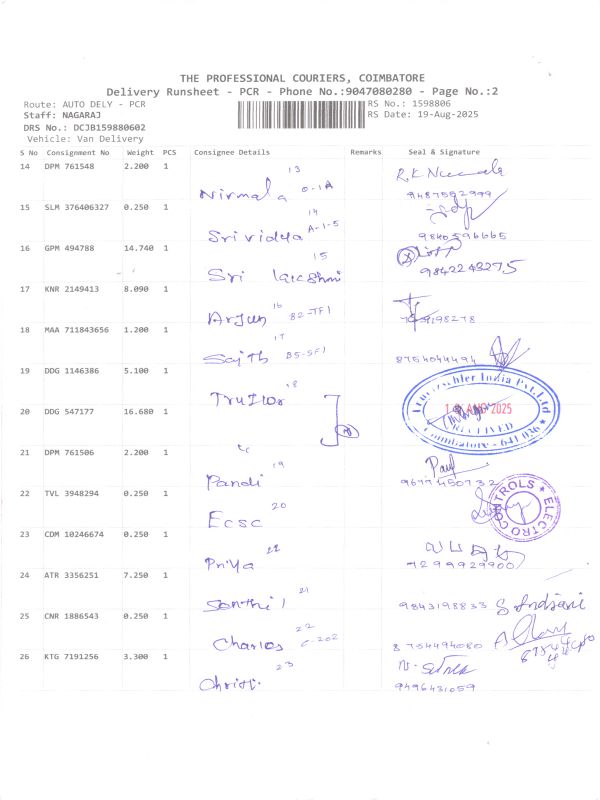 THE PROFESSIONAL COURIERS, COIMBATORE
Delivery Runsheet - PCR - Phone No.:9047080280 - Page No.:2
Route: AUTO DELY - PCR RS No.: 1598806
Staff: NAGARAJ RS Date: 19-Aug-2025
DRS No.: DCJB159880602
Vehicle: Van Delivery
S No Consignment No Weight PCS Consignee Details Remarks Seal & Signature
14 DPM 761548 2.200 1 13
Nirmala 0-1A 9487592999
15 SLM 376406327 0.250 1 14
Srividya A-1-5 9840596665
16 GPM 494788 14.740 1 15
Sri lakshmi 9842243275
17 KNR 2149413 8.090 1 16
Arjun B2-TF1
18 MAA 711843656 1.200 1 17
Sajth B5-SF1 8754044494
19 DDG 1146386 5.100 1 18
Trutzor
20 DDG 547177 16.680 1
Truetzschler India Pvt.Ltd
19 AUG 2025
RECEIVED
Coimbatore - 641 036
21 DPM 761506 2.200 1 19
Pandi Paul 9677450732
22 TVL 3948294 0.250 1 20
Ecsc
ELECTRO CONTROLS
23 CDM 10246674 0.250 1
Priya 7299929900
24 ATR 3356251 7.250 1 21
Senthil 9843198833
25 CNR 1886543 0.250 1 22
Charles C-202 8754494080
26 KTG 7191256 3.300 1 23
Christi. 9496431059